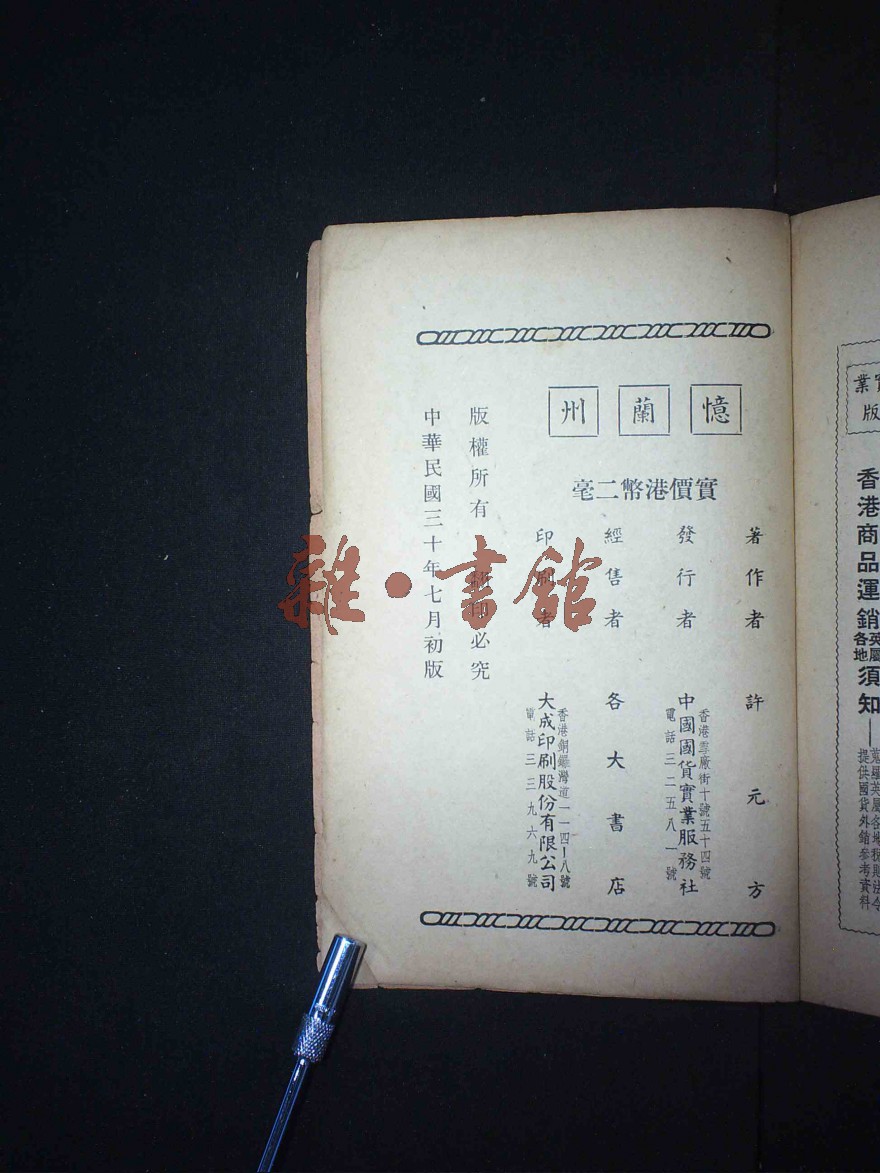 憶蘭州
實價港幣二毫
著作者 許元方
發行者 中國國貨實業服務社
香港雪廠街十號五十四號
電話三二五八一號
經售者 各大書店
印刷者 大成印刷股份有限公司
香港銅鑼灣道一一四—八號
電話三三九六九號
版權所有 翻印必究
中華民國三十年七月初版
雜·書館
香港商品運銷英屬各地須知——
蒐羅英屬各地稅則法令
提供國貨外銷參考資料